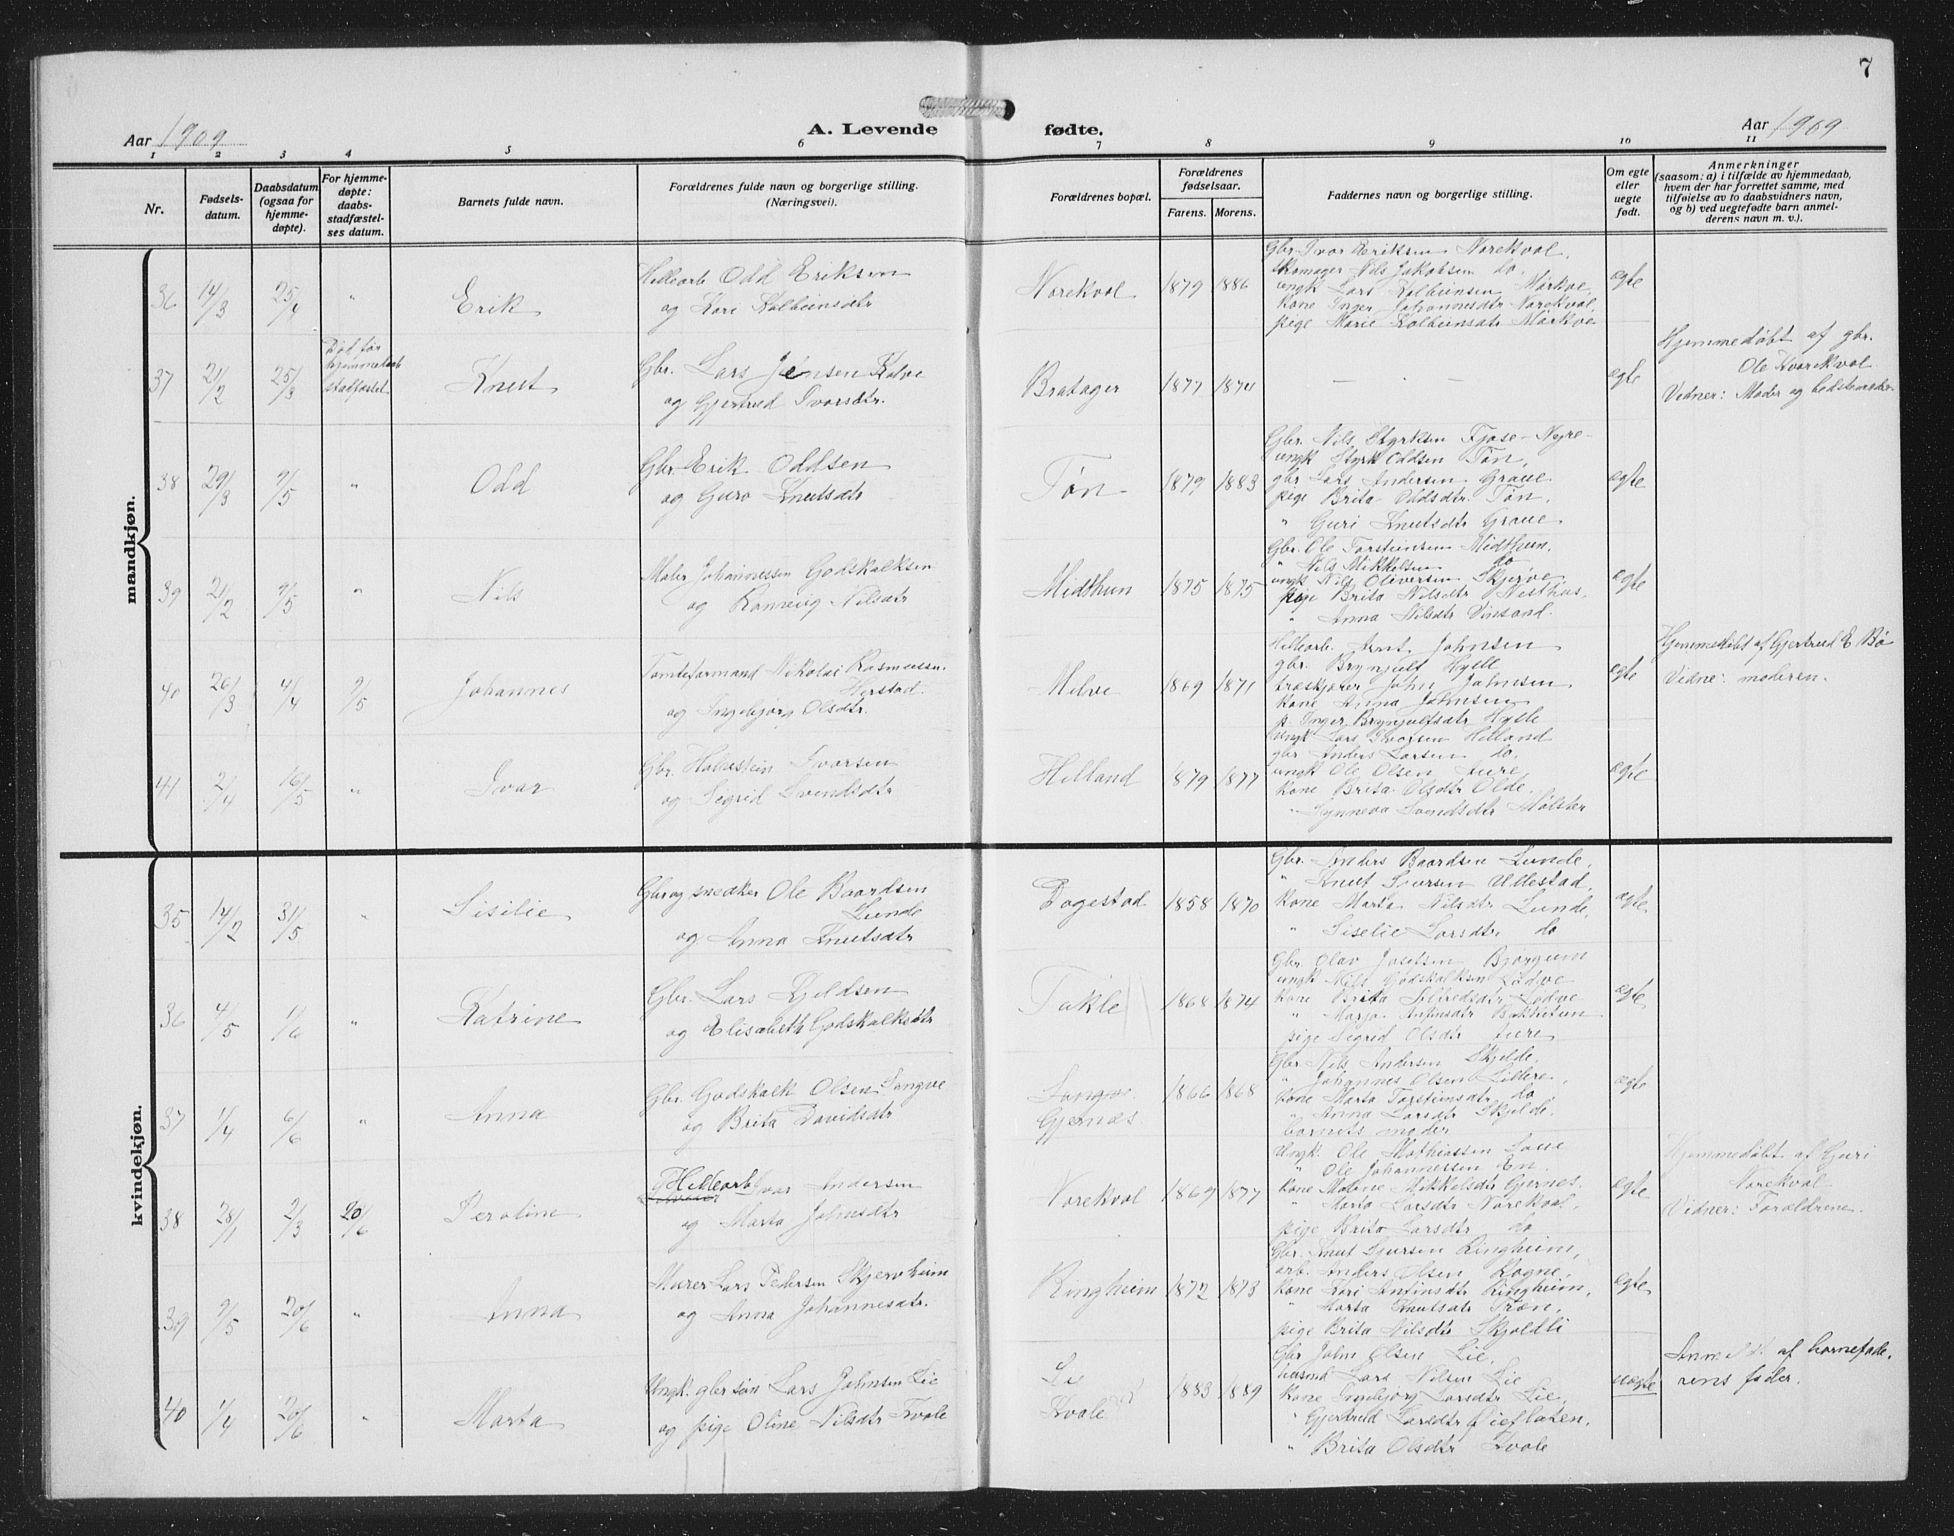 7
Aar 1909
A. Levende fødte.
Aar 1909
1 2 3 4 5 6 7 8 9 10 11
Nr.
Fødsels-
datum.
Daabsdatum
(ogsaa for
hjemme-
døpte).
For hjemme-
døpte:
daabs-
stadfæstel-
ses datum.
Barnets fulde navn.
Forældrenes fulde navn og borgerlige stilling.
(Næringsvei).
Forældrenes bopæl.
Forældrenes
fødselsaar.
Farens. Morens.
Faddernes navn og borgerlige stilling.
Om egte
eller
uegte
født.
Anmerkninger
(saasom: a) i tilfælde av hjemmedaab,
hvem der har forrettet samme, med
tilføielse av to daabsvidners navn,
og b) ved uegtefødte barn anmel-
derens navn m. v.).
mandkjøn.
36 14/3 25/4 " Erik
Hellearb Odd Eriksen
og Kari Kolbeinsdtr
Norekval 1879 1886
Gbr. Ivar Eriksen Norekval,
Skomager Nils Jakobsen do,
ungk Lars Kolbeinsen Mörkve,
kone Inger Johannesdtr Norekval,
pige Marie Kolbeinsdtr Mörkve
egte
37 21/2 25/3
Död før
hjemmedaab
stadfæstet
Knut
Gbr. Lars Jensen Kolve
og Gjertrud Ivarsdtr.
Bratager 1877 1874
- - -
egte
Hjemmedöbt af gbr.
Ole Norekval
Vidner: Moder og bedstemoder
38 29/3 9/5 " Odd
Gbr Erik Oddsen
og Guro Knutsdtr
Tøn 1879 1883
Gbr. Nils Styrksen Fjose-Nyre-
ungk Styrk Oddsen Tøn,
gbr Lars Andersen Graue
pige Brita Oddsdtr Tøn,
" Guri Knutsdtr Graue
egte
39 21/2 9/5 " Nils
Maler Johannessen Godskalksen
og Ramveig Nilsdtr
Midthun 1875 1875
Gbr. Ole Torsteinsen Midthun,
" Nils Mikkelsen do
ungk Nils Oliversen Skjerve,
pige Brita Nilsdtr Nesthus,
" Anna Nilsdtr Vinsand.
egte
40 26/3 4/4 9/5 Johannes
Tomteformand Nikolai Rasmussen
Herstad
og Ingebjorg Olsdtr.
Melve 1869 1871
Hellearb. Arnt Johnsen
gbr. Brynjulf Hylle
træskjærer John Johnsen
kone Anna Johnsen
p. Inger Brynjulfsdtr Hylle
egte
Hjemmedöbt af Gjertrud E Bö
Vidne: moderen.
41 2/4 16/5 " Ivar
Gbr. Halvstein Ivarsen
og Sigrid Svendsdtr
Helland 1879 1877
Ungk Lars Ivarsen Helland
gbr Anders Larsen do,
ungk Ole Olsen Aure
kone Brita Olsdtr Olde,
" Synneva Svendsdtr Mölster
egte
kvindekjøn.
35 14/2 31/5 " Sisilie
Gbr og snedker Ole Baardsen
Lunde
og Anna Knutsdtr
Dagestad 1858 1870
Gbr. Anders Baardsen Lunde,
" Knut Sjursen Ullestad,
kone Marta Nilsdtr Lunde,
" Siselie Larsdtr do
egte
36 4/5 1/6 " Katrine
Gbr. Lars Kjeldsen
og Elisabeth Godskalksdtr
Takle 1868 1874
Gbr Olav Josefsen Bjorgum
ungk Nils Godskalksen Lødve
kone Brita Sjurdsdtr Lødve
" Marja Anfinsdtr Bakketun
pige Sigrid Olsdtr Aure
egte
37 1/4 6/6 " Anna
Gbr. Godskalk Olsen Tungve
og Brita Davidsdtr
Gjernæs 1866 1868
Gbr Nils Andersen Skjelde,
" Johannes Olsen Lillere,
kone Marta Torsteinsdtr do,
" Anna Larsdtr Skjelde.
barnets moder
egte
38 28/1 2/3 20/6 Peroline
Hellearb. Ivar Andersen
og Marta Johnsdtr
Norekval 1869 1877
Ungk. Ole Mathiassen Lone
" Ole Johannessen En
kone Malene Mikkelsdtr Gjernes,
" Marta Larsdtr Norekval,
pige Brita Larsdtr do
egte
Hjemmedöbt af Guri
Norekval
Vidner: Forældrene.
39 9/5 20/6 " Anna
Murer Lars Pedersen Skjervheim
og Anna Johannesdtr.
Ringheim 1872 1873
Gbr. Knut Sjursen Ringheim,
arb. Anders Olsen Rogne,
kone Kari Anfinsdtr Ringheim,
" Marta Knutsdtr Træn,
pige Brita Nilsdtr Skjoldli
egte
40 1/4 20/6 " Marta
Ungk. gbr søn Lars Johnsen Lie
og pige Oline Nilsdtr Kvale
Li
Kvale
1883 1889
Gbr John Olsen Lie,
husmd Lars Nilsen Lie
kone Ingebjorg Larsdtr Lie,
" Gjertrud Larsdtr Lieflaten,
" Brita Olsdtr Kvale
uegte
Anmeldt af barnefade-
rens fader.